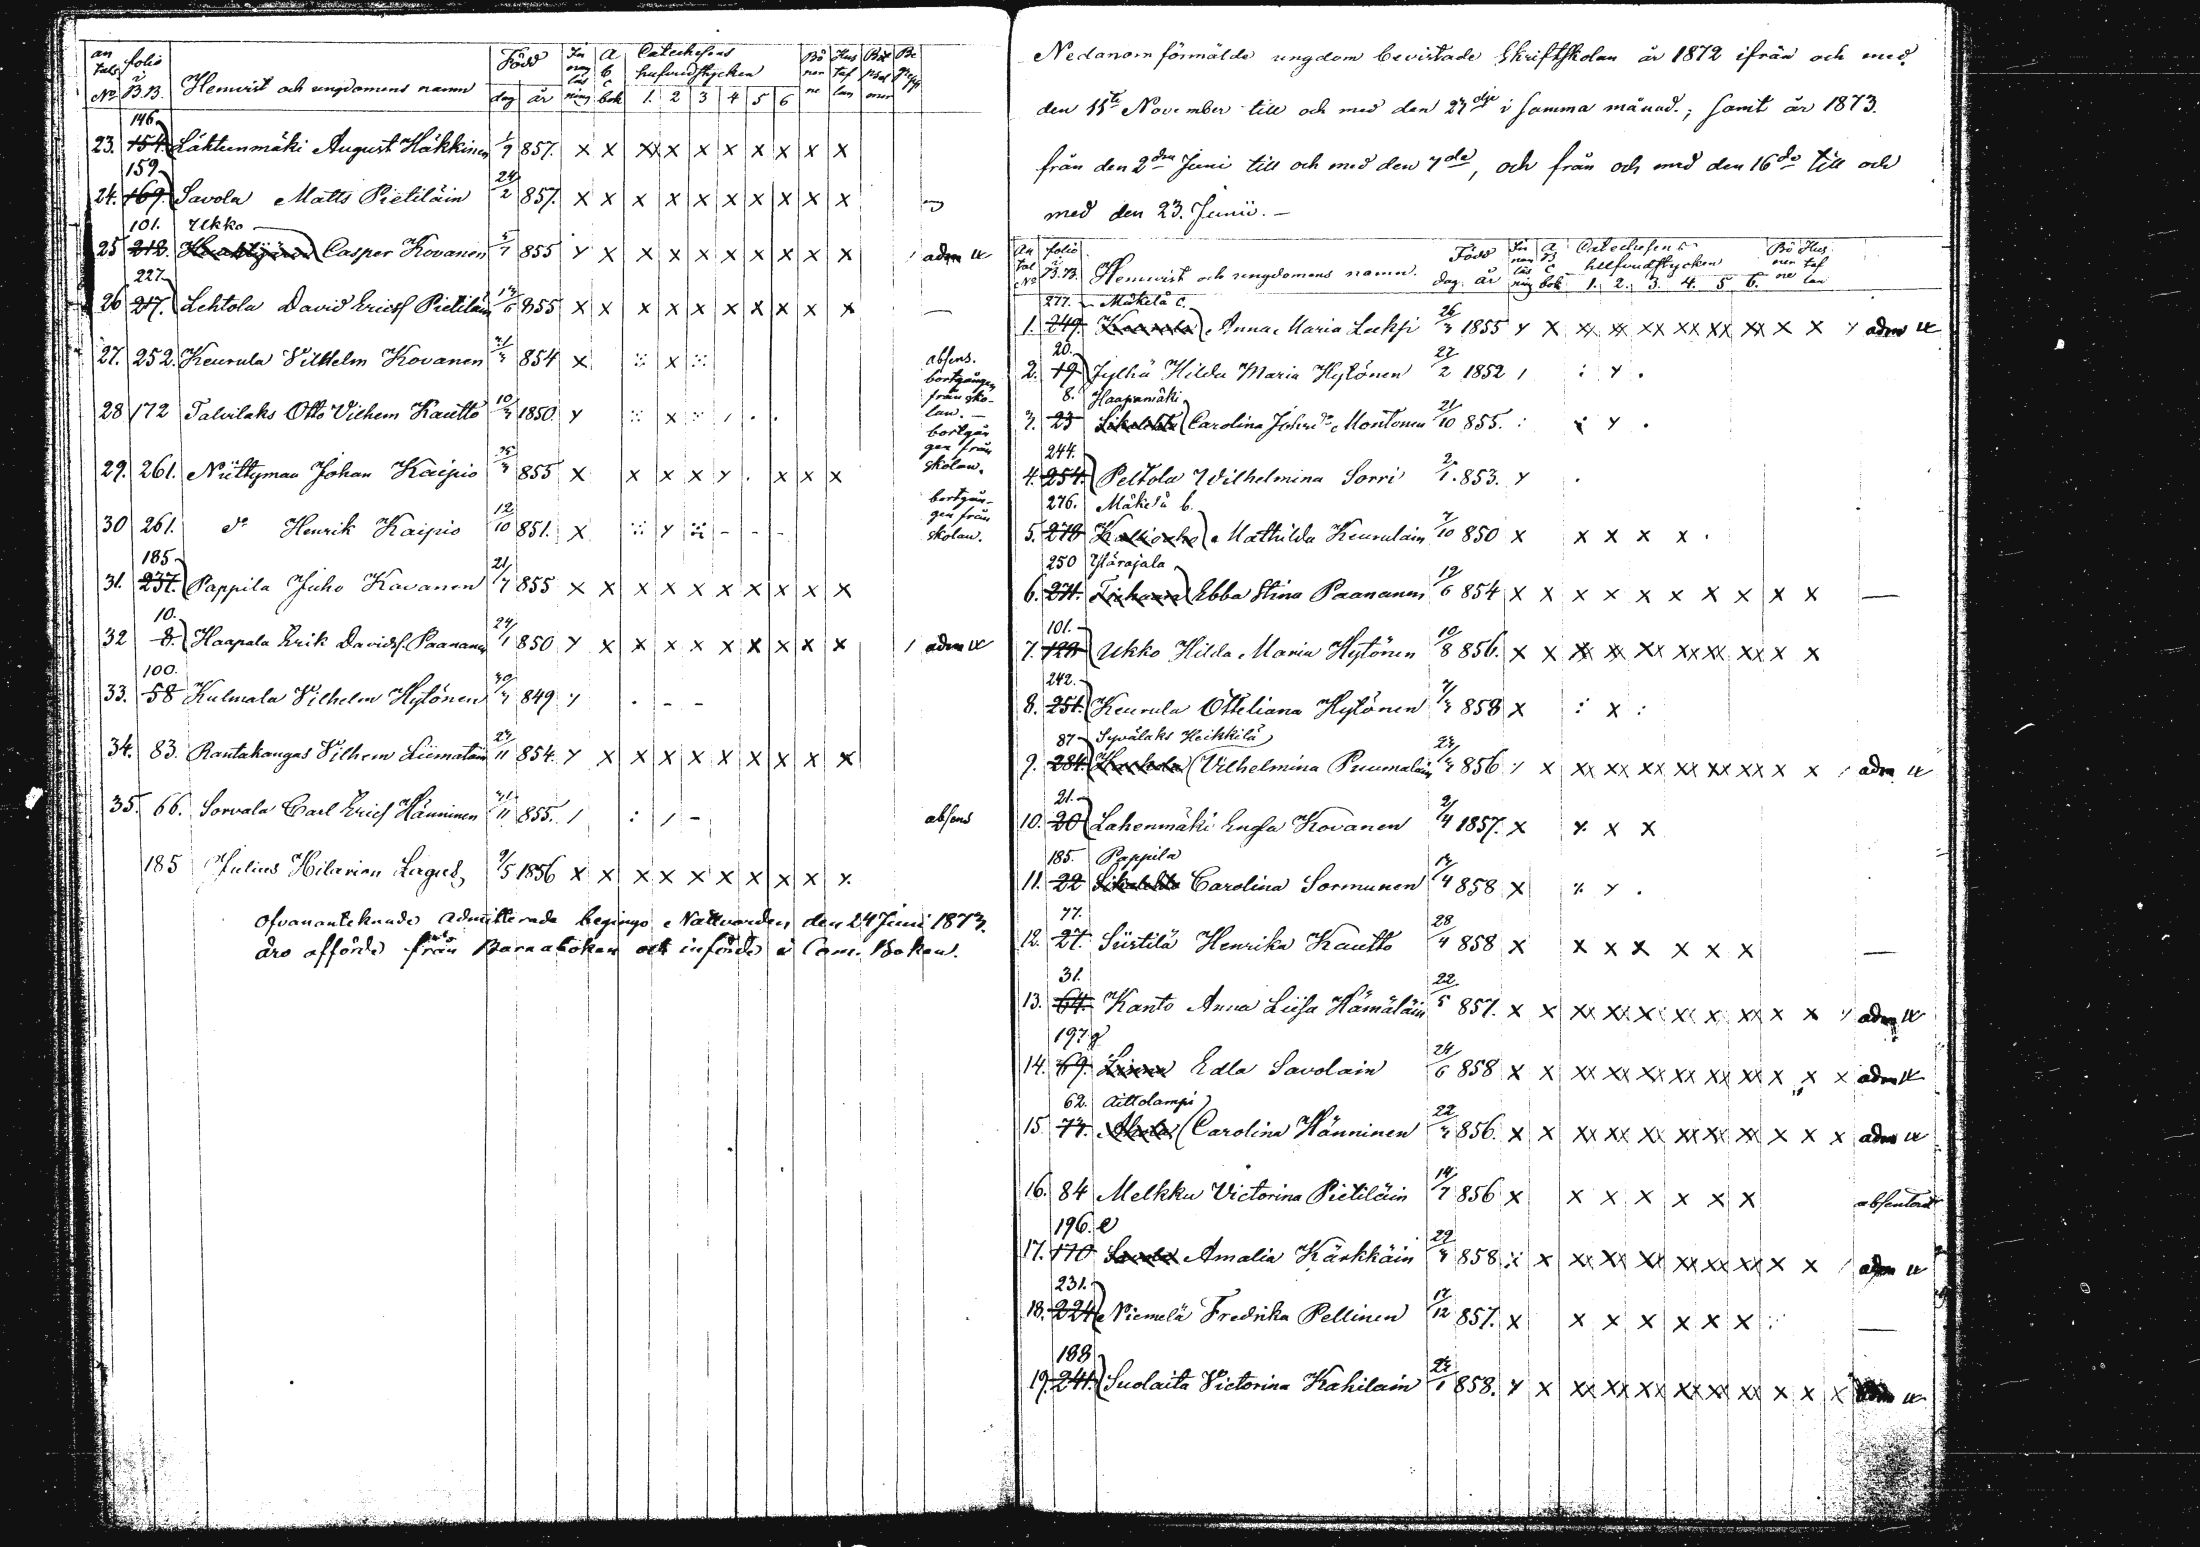 an tals No folio i B.B. Hemvist och ungdomens namn Född dag år In nan läs ning A B C bok Catechesens hufvudstycken 1. 2 3 4 5 6 Bö ner ne Hus taf lan Bot Psal mer
146.
23. 154. Läktenmäki August Häkkinen 1/9 857. x x xx x x x x x x x
159.
24. 169. Savola Matts Pietiläin 24/2 857. x x x x x x x x x x
101. Ukko
25 218. Casper Kovanen 5/7 855 y x x x x x x x x x / adm
227.
26 217. Lehtola David Ericss Pietiläin 13/6 855 x x x x x x x x x x —
27. 252. Keurula Vilhelm Kovanen 854 x x absens.
bortgången från skolan. —
28 172 Talvilaks Otto Vilhem Kautto 10/3 1850. y x
bortgången från skolan.
29. 261. Niittymaa Johan Kaipio 855 x x x x y . x x x
bortgången från skolan.
30 261. do Henrik Kaipio 12/10 851. x y - - -
185
31. 237. Pappila Juho Kovanen 21/7 855 x x x x x x x x x x
10.
32 8. Haapala Erik Davidss. Paananen 24/1 850 y x x x x x x x x x / adm
100.
33. 58 Kulmala Vilhelm Hytönen 849 y . - -
34. 83. Rantakangas Vilhem Liimatain 23/11 854. y x x x x x x x x x
35. 66. Sorvala Carl Erics Hänninen 11 855. / : / - absens
185 Julius Hilarion Lagus, 9/5 1856 x x x x x x x x x x
Ofvananteknade admitterade begingo Nattvarden den 24 Juni 1873.
äro afförde från Barnaboken och införde i Com. Boken.
Nedanom förmälde ungdom bevistade Skriftskolan år 1872 ifrån och med
den 11te November till och med den 27de i samma månad.; samt år 1873.
från den 2dra Juni till och med den 7de, och från och med den 16de till och
med den 23. Junii. —
An tal No folio i B.B. Hemvist och ungdomens namn. Född dag. år In nan läs ning A B C bok Catechesens hufvudstycken 1. 2. 3. 4. 5 6. Bö ner ne Hus taf lan
277. Mäkelä c.
1. 249. Anna Maria Leksi 26/3 1855 y x xx xx xx xx xx xx x x y adm
20.
2. 19. Jylhä Hilda Maria Hytönen 27/2 1852 / : y .
8. Haapamäki
3. 23 Carolina Montonen 21/10 855. : y .
244.
4. 254. Peltola Wilhelmina Sorri 2/1. 853. y .
276. Mäkelä b.
5. 278 Mathilda Keurulain 7/10 850 x x x x x .
250 Ylärajala
6. 271. Ebba Stina Paananen 19/6 854 x x x x x x x x x x —
101.
7. 129. Ukko Hilda Maria Hytönen 10/8 856. x x xx xx xx xx xx xx x x
242.
8. 251. Keurula Otteliana Hytönen 858 x : x :
87 Syvälaks Heikkilä
9. 284. Vilhelmina Puumalain 23/3 856 y x xx xx xx xx xx xx x x / adm
21.
10. 20 Lahenmäki Engla Kovanen 2/4 1857. x x x x
185. Pappila
11. 22 Carolina Sormunen 13/4 858 x y .
77.
12. 27. Siistilä Henrika Kautto 28/4 858 x x x x x x x —
31.
13. 64. Kanto Anna Liisa Hämäläin 22/5 857. x x xx xx xx xx x xx x x y adm
197 g
14. 69. Edla Savolain 24/6 858 x x xx xx xx xx xx xx x x x adm
62. Aittolampi
15. 77. Carolina Hänninen 22/3 856. x x xx xx xx xx xx xx x x x adm
16. 84 Melkku Victorina Pietiläin 14/7 856 x x x x x x x absenterat
196. e
17. 170 Amalia Kärkkäin 29/3 858 x x xx xx xx xx xx xx x x / adm
231.
18. 224 Niemelä Fredrika Pellinen 17/12 857. x x x x x x x —
188
19. 241. Suolaita Victorina Kahilain 23/1 858. y x xx xx xx xx xx xx x x x adm